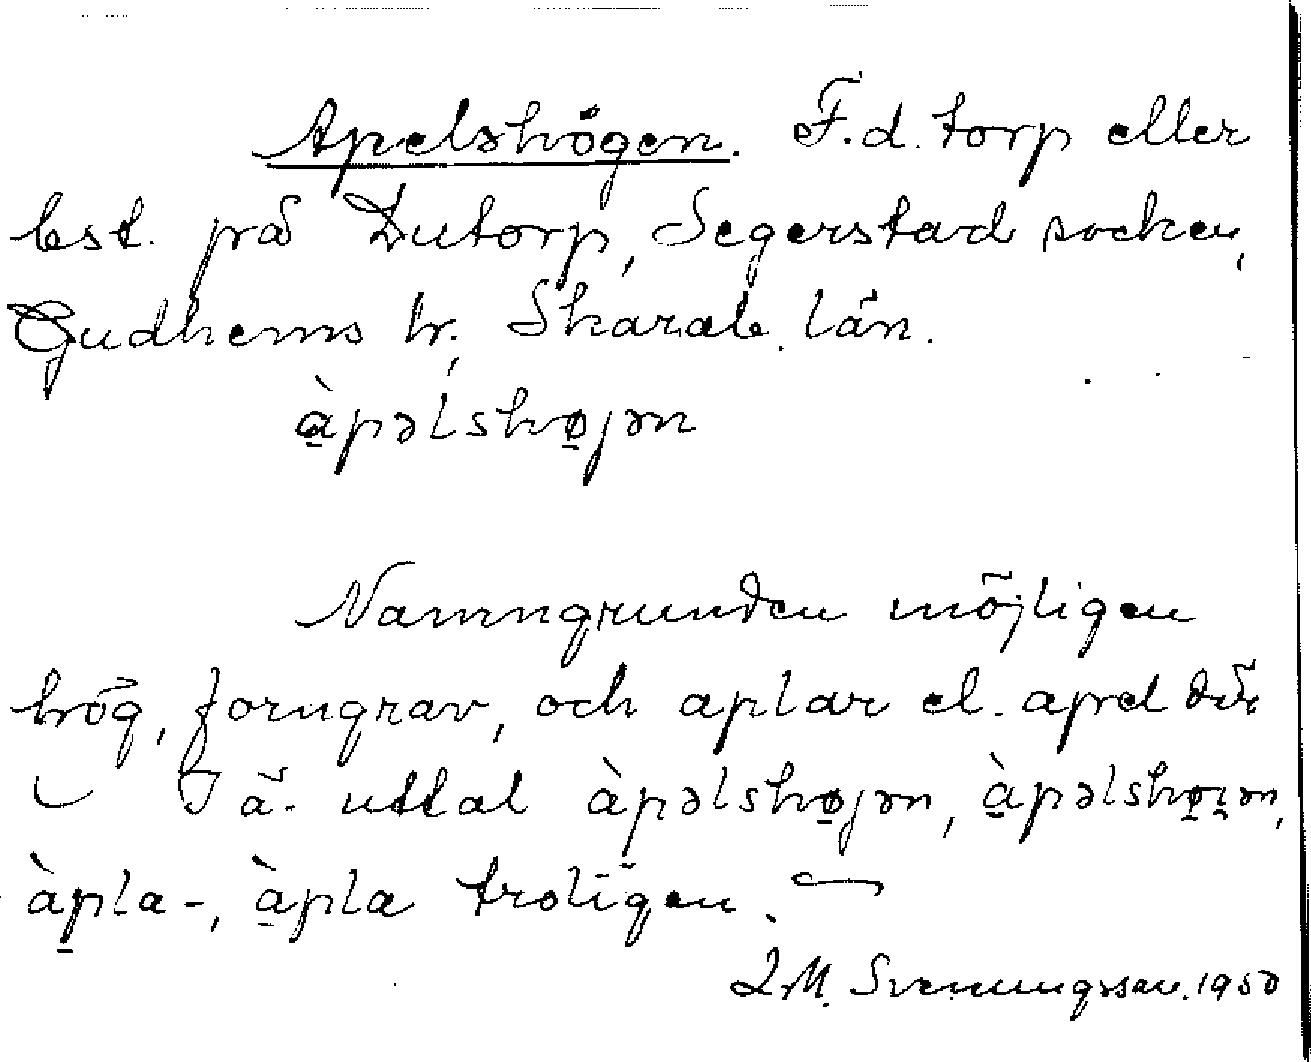 Apelshögen. F.d. torp eller
best. på Dutorp, Segerstad socken,
Gudhems hr., Skarab. län.
à̱pəlshø̱jən
Namngrunden möjligen
hög, forngrav, och aplar el. apel där
ä. uttal àpəlshø̱jən, à̱pəlshø̱i̯ən,
àp̱la-, à̱pla troligen.
L.M. Svenungsson. 1950